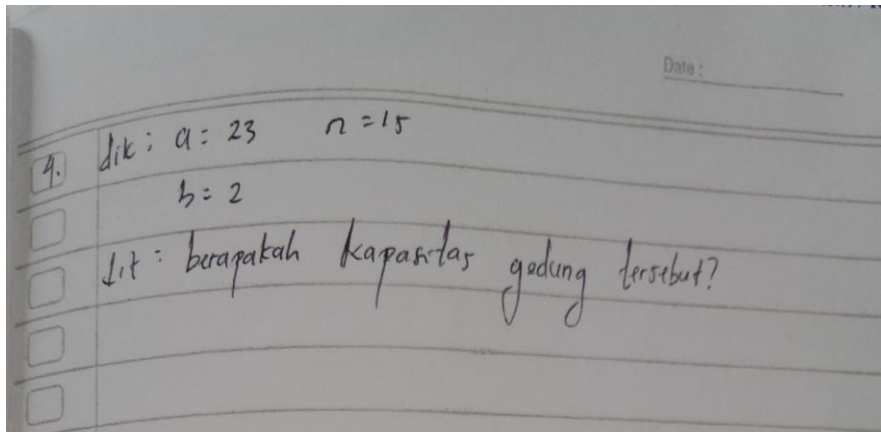 Date :
4. dik : a = 23 n = 15
b = 2
dit : berapakah kapasitas gedung tersebut?